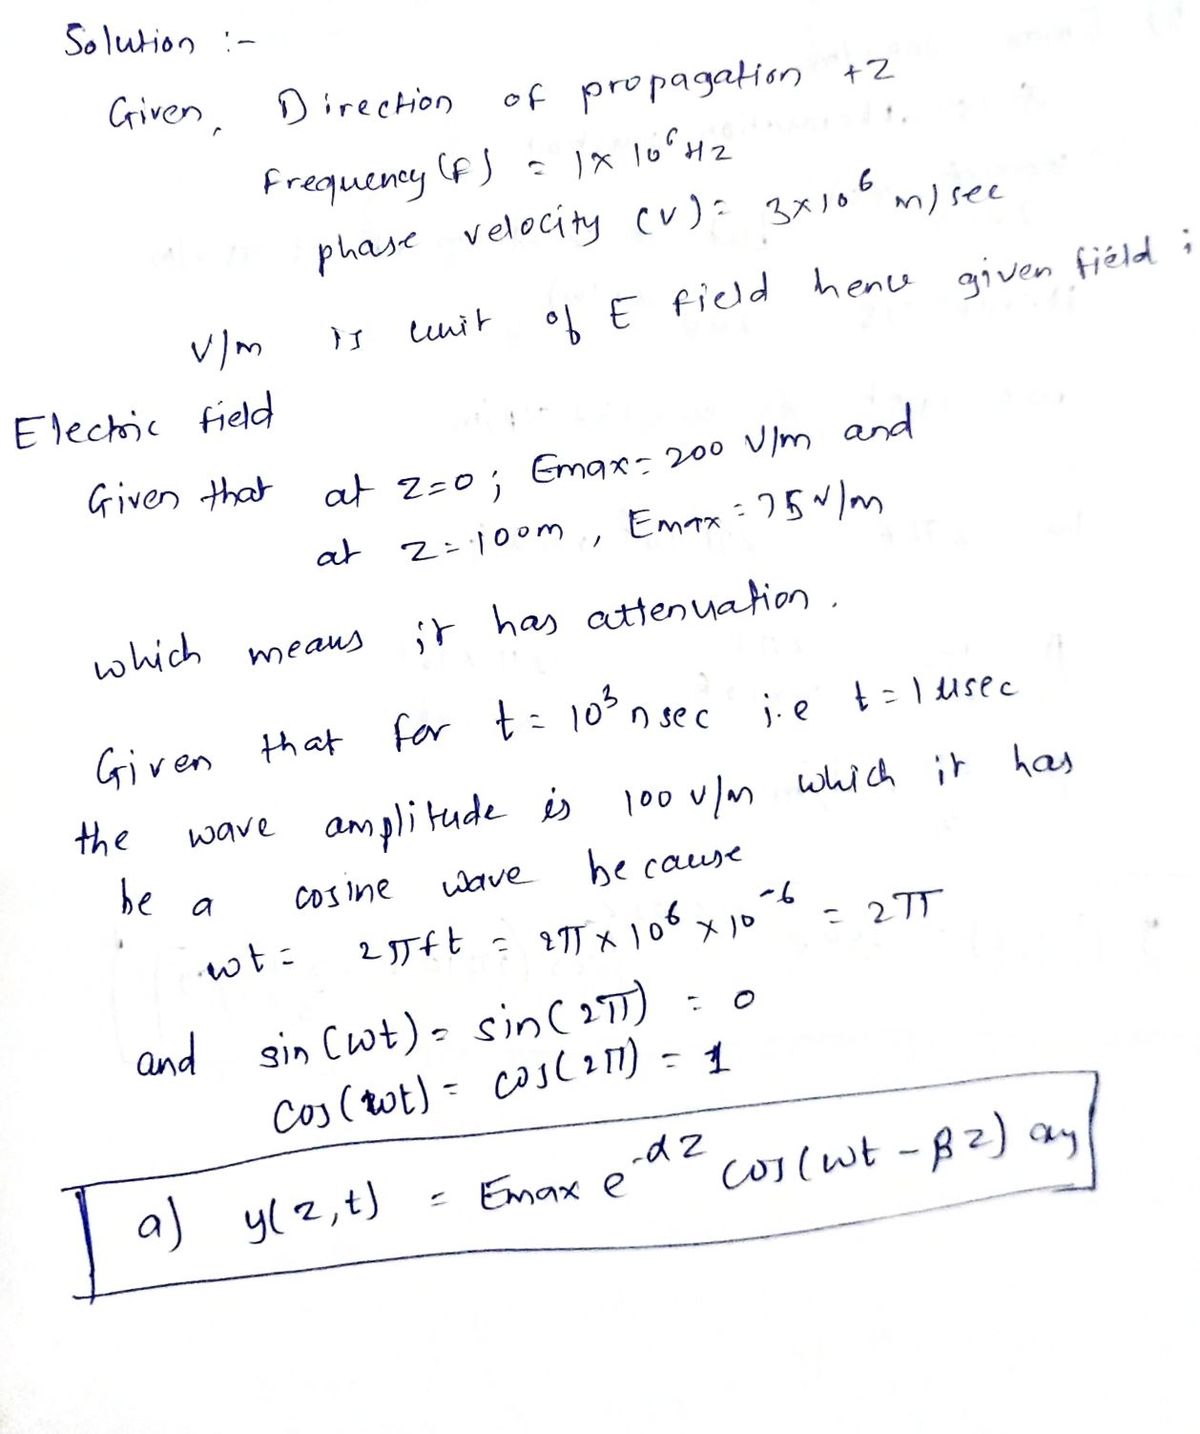 Solution :-
Given, Direction of propagation +z
frequency (f) = 1 × 10⁶ Hz
phase velocity (v) = 3×10⁶ m/sec
V/m is unit of E field hence given field ;
Electric field
Given that at z=0 ; Emax = 200 V/m and
at z = 100m , Emax = 75 V/m
which means it has attenuation .
Given that for t = 10³ nsec i.e t = 1 μsec
the wave amplitude is 100 v/m which it has
be a cosine wave because
wt = 2πft = 2π × 10⁶ × 10⁻⁶ = 2π
and sin(wt) = sin(2π) = 0
cos(wt) = cos(2π) = 1
a) y(z,t) = Emax e^-αz cos(wt - βz) ay